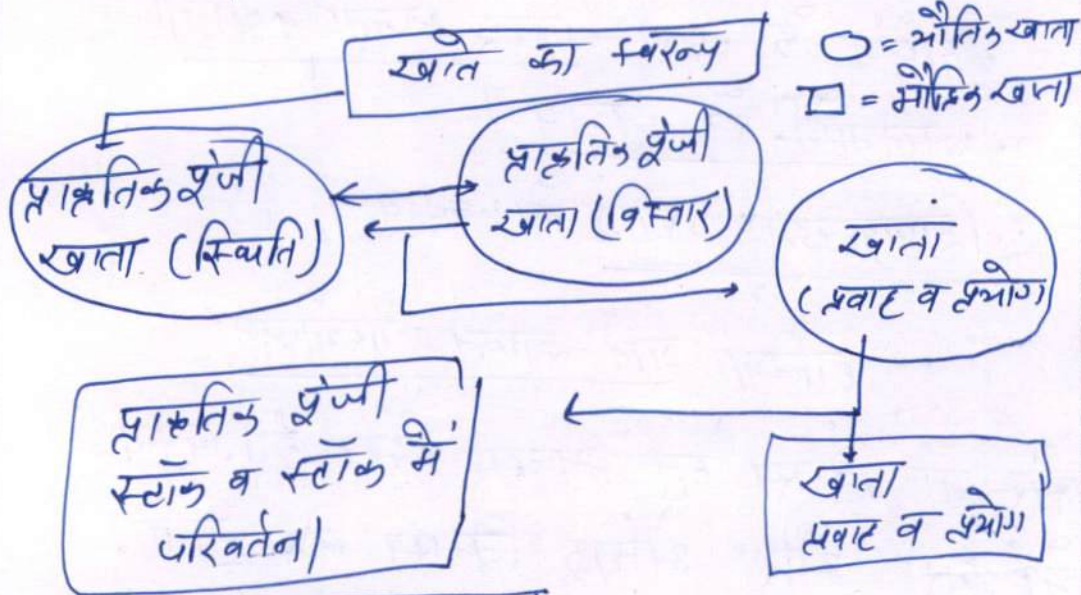 खाते का स्वरूप
○ = भौतिक खाता
□ = मौद्रिक खाता
प्राकृतिक पूंजी
खाता (स्थिति)
प्राकृतिक पूंजी
खाता (विस्तार)
खाता
(प्रवाह व प्रयोग)
प्राकृतिक पूंजी
स्टॉक व स्टॉक में
परिवर्तन।
खाता
प्रवाह व प्रयोग।